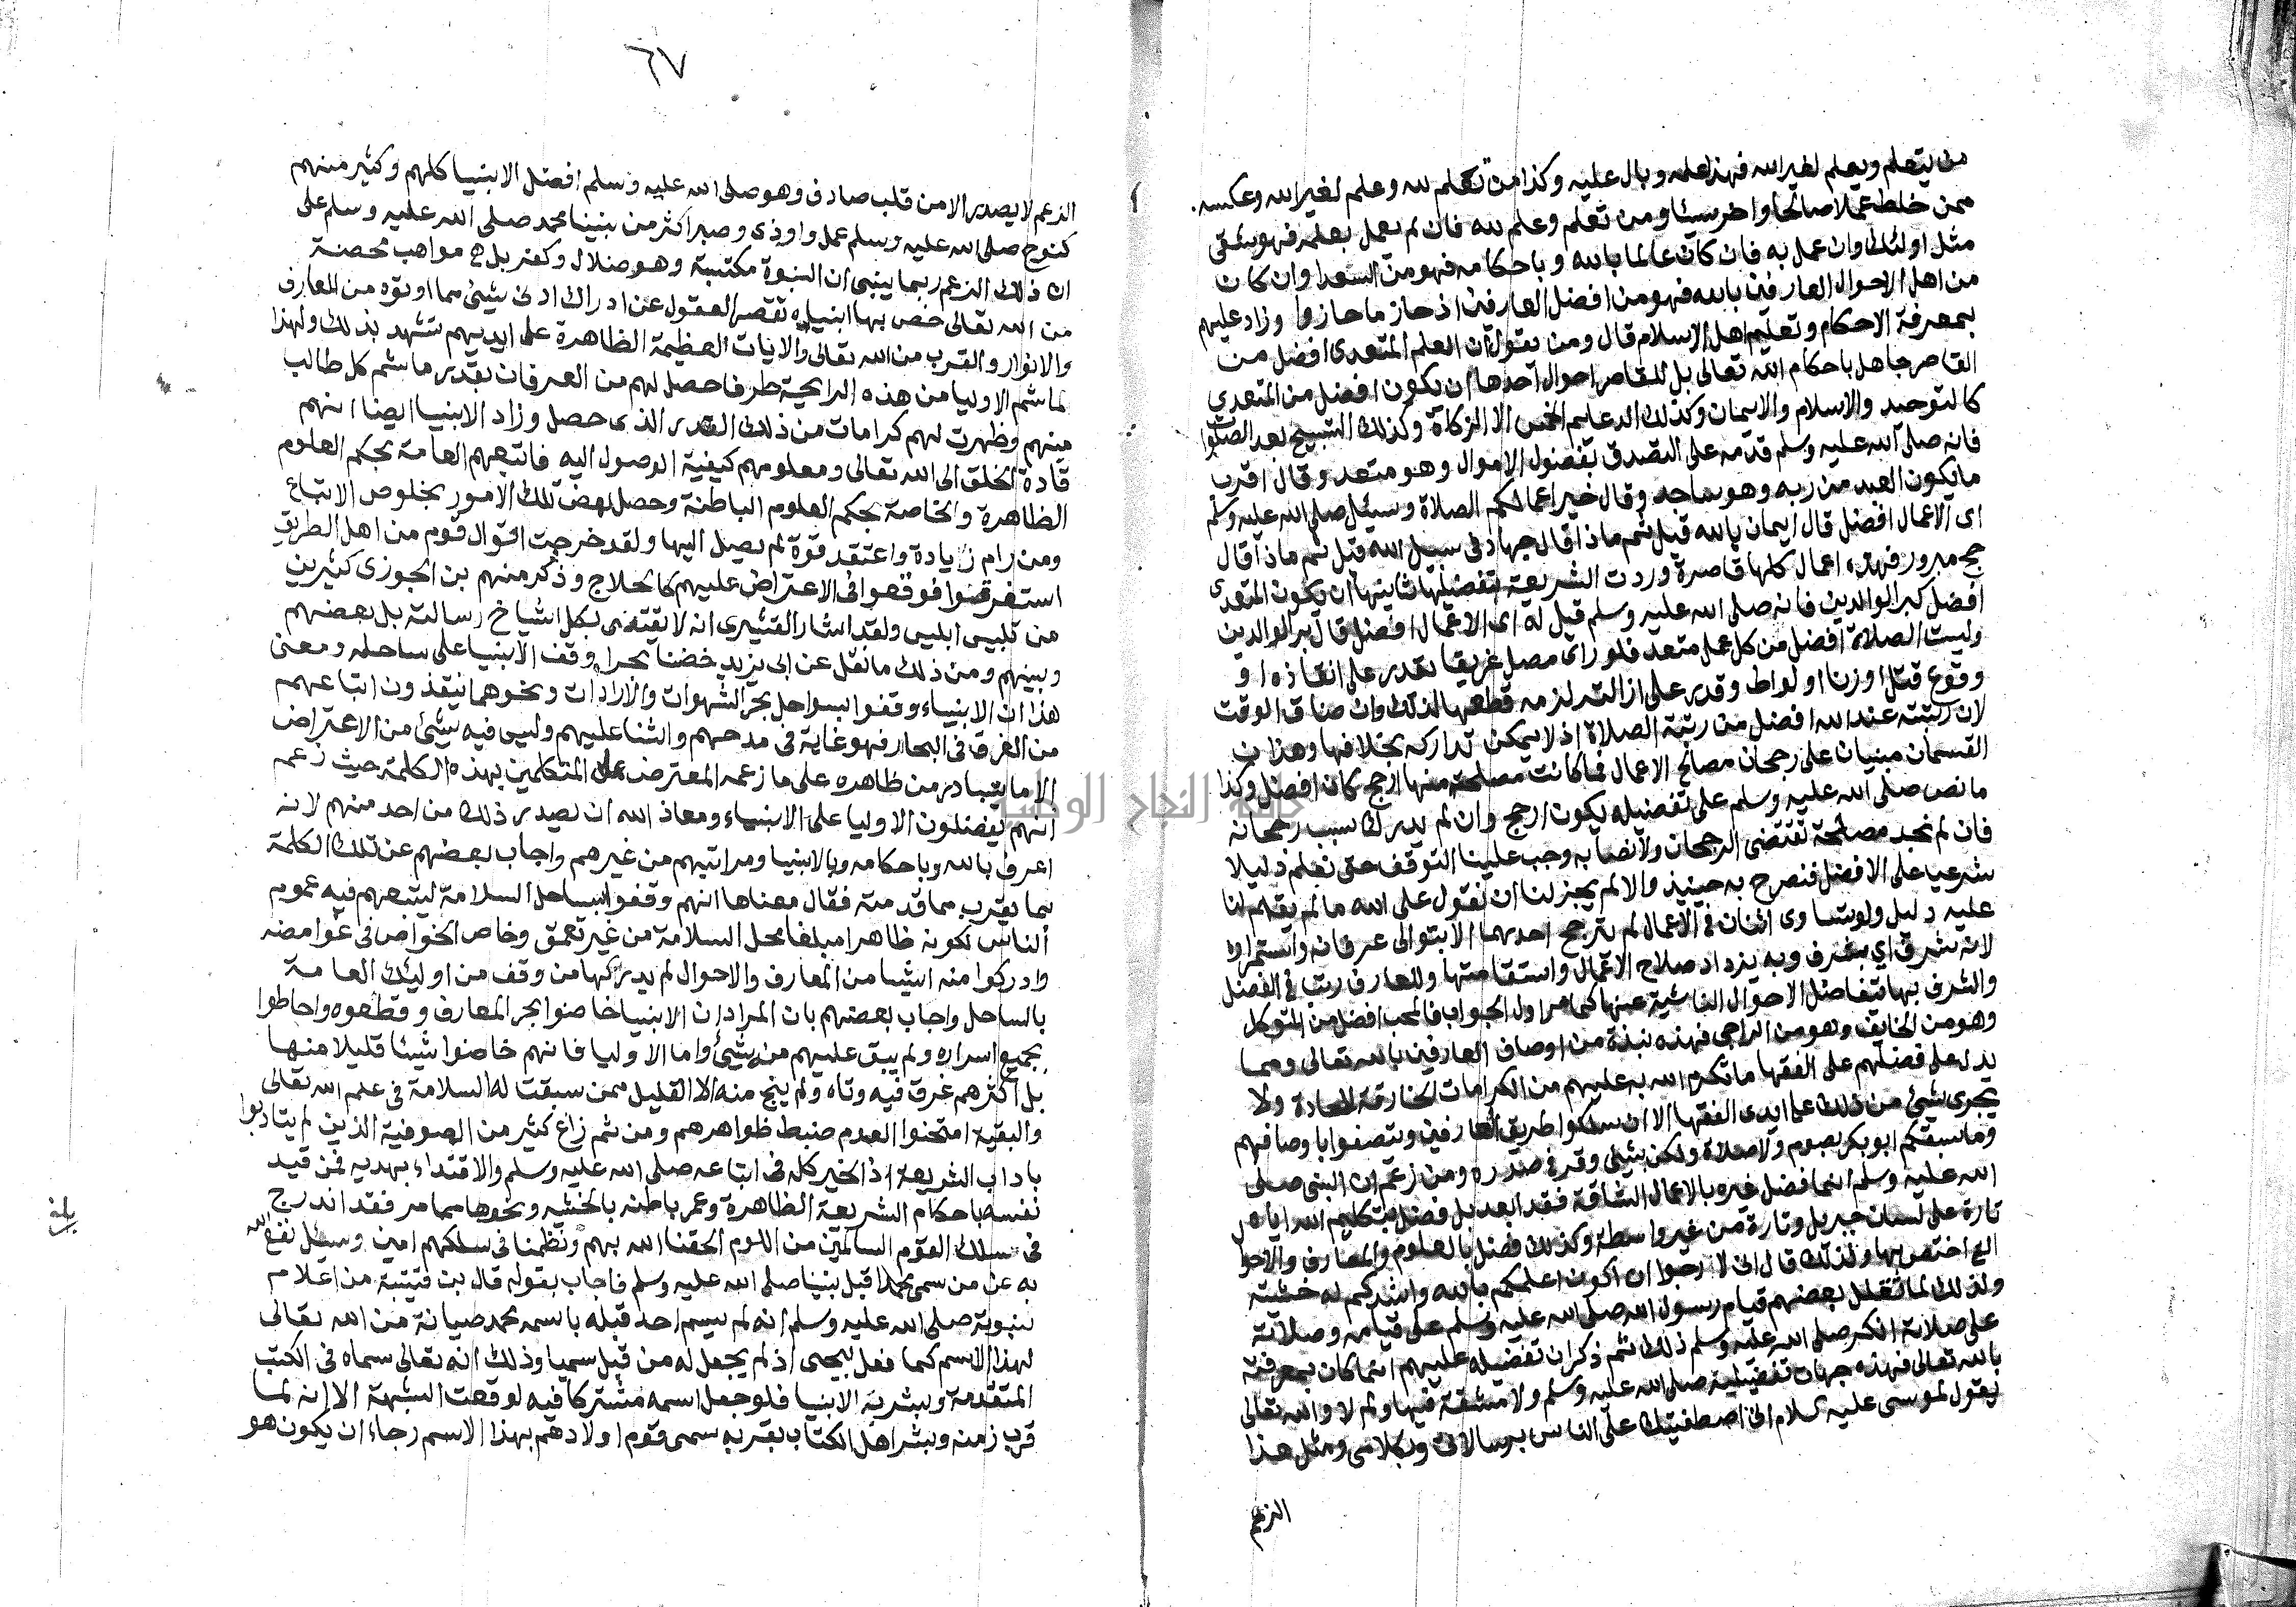 من يتعلم ويعلم لغير الله فهذا علمه وبال عليه وكذا من تعلم لله وعلم لغير الله وعكسه
ممن خلط عملا صالحا واخر سيئا ومن تعلم وعلم لله فان لم يعمل بعلمه فهو شقي
مثل اولئك وان عمل به فان كان عالما بالله وباحكامه فهو من السعدا وان كان
من اهل الاحوال العارفين بالله فهو من افضل العارفين اذ حاز ما حازوا وزاد عليهم
بمعرفة الاحكام وتعليم اهل الاسلام قال ومن يقول ان العلم المتعدى افضل من
القاصر جاهل باحكام الله تعالى بل للقاصر احوال احدها ان يكون افضل من المتعدى
كالتوحيد والاسلام والايمان وكذلك الدعايم الخمس الا الزكاة وكذلك التسبيح بعد الصلوات
فانه صلى الله عليه وسلم قدمه على التصدق بفضول الاموال وهو متعد وقال اقرب
ما يكون العبد من ربه وهو ساجد وقال خير اعمالكم الصلاة وسيئل صلى الله عليه وسلم
اى الاعمال افضل قال ايمان بالله قيل ثم ماذا قال جهاد في سبيل الله قيل ثم ماذا قال
حج مبرور فهذه اعمال كلها قاصرة وردت الشريعة بتفضيلها ثانيها ان يكون المتعدى
افضل كبر الوالدين فانه صلى الله عليه وسلم قيل له اى الاعمال افضل قال بر الوالدين
وليست الصلاة افضل من كل عمل متعد فلو راى مصل غريقا يقدر على انقاذه او
وقوع قتل او زنا او لواط وقدر على ازالته لزمه قطعها لذلك وان ضاق الوقت
لان رتبته عند الله افضل من رتبة الصلاة اذ لا يمكن تداركه بخلافها وهذان
القسمان مبنيان على رجحان مصالح الاعمال فما كانت مصلحته منها ارجح كان افضل وكذا
ما نص صلى الله عليه وسلم على تفضيله يكون ارجح وان لم يدرك سبب رجحانه
فان لم نجد مصلحة تقتضى الرجحان ولا نصا به وجب علينا التوقف حتى نعلم دليلا
شرعيا على الافضل فنصرح به حينيذ والا لم يجز لنا ان نقول على الله ما لم يقم لنا
عليه دليل ولو تساوى اثنان في الاعمال لم يترجح احدهما الا بتوالى عرفان واستمراره
لانه شرف اي شرف وبه يزداد صلاح الاعمال واستقامتها وللمعارف رتب في الفضل
والشرف بها تتفاضل الاحوال الناشية عنها كما مر اول الجواب فالمحب افضل من المتوكل
وهو من الخايف وهو من الراجى فهذه نبذة من اوصاف العارفين بالله تعالى ومما
يدل على فضلهم على الفقها ما تكرم الله به عليهم من الكرامات الخارقة للعادة ولا
يجرى شيئ من ذلك على ايدى الفقها الا ان سلكوا طريق العارفين وتتصفوا باوصافهم
وما سبقكم ابو بكر بصوم ولا صلاة ولكن بشئ وقر في صدره ومن زعم ان النبى صلى
الله عليه وسلم انما فضل غيره بالاعمال الشاقة فقد ابعد بل فضل بتكليم الله اياه
تارة على لسان جبريل وتارة من غير واسطة وكذلك فضل بالعلوم والمعارف والاحوال
التي اختص بها ولذلك قال انى لارجوا ان اكون اعلمكم بالله واشدكم له خشية
ولذلك لما تقلل بعضهم قيام رسول الله صلى الله عليه وسلم على قيامه وصلاته
على صلاته انكر صلى الله عليه وسلم ذلك ثم ذكر ان تفضيله عليهم انما كان بمعرفته
بالله تعالى فهذه جهات تفضيلية صلى الله عليه وسلم ولا مشقة فيها ولم لا والله تعالى
يقول لموسى عليه السلام انى اصطفيتك على الناس برسالاتى وبكلامى ومثل هذا
الزعم
٦٧
الزعم لا يصدر الا من قلب صادف وهو صلى الله عليه وسلم افضل الانبيا كلهم وكثير منهم
كنوح صلى الله عليه وسلم عمل واوذى وصبر اكثر من نبينا محمد صلى الله عليه وسلم على
ان ذلك الزعم ربما ينبى ان النبوة مكتسبة وهو ضلال وكفر بل هى مواهب محضة
من الله تعالى خص بها انبياه تقصر العقول عن ادراك ادنى شيئ مما اوتوه من المعارف
والانوار والقرب من الله تعالى والايات العظيمة الظاهرة على ايديهم تشهد بذلك ولهذا
لما شم الاوليا من هذه الرايحة طرفا حصل لهم من العرفان بقدر ما شم كل طالب
منهم وظهرت لهم كرامات من ذلك القدر الذى حصل وزاد الانبيا ايضا انهم
قادة الخلق الى الله تعالى ومعلومهم كيفية الوصول اليه فاتبعهم العامة بحكم العلوم
الظاهرة والخاصة بحكم العلوم الباطنة وحصل لهم تلك الامور بخلوص الاتباع
ومن رام زيادة واعتقد قوة لم يصل اليها ولقد خرجت اقوال قوم من اهل الطريق
استغرقوا فوقعوا في الاعتراض عليهم كالحلاج وذكر منهم بن الجوزى كثيرين
من تلبيس ابليس ولقد اشار القشيرى انه لا يقتدى بكل اشياخ رسالته بل بعضهم
وبينهم ومن ذلك ما نقل عن ابى يزيد خضنا بحرا وقف الانبيا على ساحله ومعنى
هذا ان الانبياء وقفوا بسواحل بحر الشهوات والارادات ونحوهما ينقذون اتباعهم
من الغرق في البحار فهو غاية في مدحهم والثنا عليهم وليس فيه شيئ من الاعتراض
الا ما يتبادر من ظاهره على ما زعمه المعترض على المتكلمين بهذه الكلمة حيث زعم
انهم يفضلون الاوليا على الانبياء ومعاذ الله ان يصدر ذلك من احد منهم لانه
اعرف بالله وباحكامه وبالانبيا ومراتبهم من غيرهم واجاب بعضهم عن تلك الكلمة
بما يقرب مما قدمته فقال معناها انهم وقفوا بساحل السلامة ليتبعهم فيه عموم
الناس لكونه ظاهرا مبلغا لمحل السلامة من غير تعمق وخاص الخواص في غوامضه
وادركوا منه اشيا من المعارف والاحوال لم يدركها من وقف من اوليك العامة
بالساحل واجاب بعضهم بان المراد ان الانبيا خاضوا بحر المعارف وقطعوه واحاطوا
بجميع اسراره ولم يبق عليهم منه شيئ واما الاوليا فانهم خاضوا شيئا قليلا منها
بل اكثرهم غرق فيه وتاه ولم ينج منه الا القليل ممن سبقت له السلامة في علم الله تعالى
والبقية امتحنوا لعدم ضبط ظواهرهم ومن ثم زاغ كثير من الصوفية الذين لم يتادبوا
باداب الشريعة اذ الخير كله في اتباعه صلى الله عليه وسلم والاقتداء بهديه فمن قيد
نفسه باحكام الشريعة الظاهرة وعمر باطنه بالخشية ونحوها مما مر فقد اندرج
في سلك القوم السالمين من اللوم الحقنا الله بهم ونظمنا في سلكهم امين وسئل نفع الله
به عن من سمى محمدا قبل نبينا صلى الله عليه وسلم فاجاب بقوله قال بن قتيبة من اعلام
نبوته صلى الله عليه وسلم انه لم يسم احد قبله باسمه محمد صيانة من الله تعالى
لهذا الاسم كما فعل بيحيى اذ لم يجعل له من قبل سميا وذلك انه تعالى سماه في الكتب
المتقدمة وبشر به الانبيا فلو جعل اسمه مشتركا فيه لوقعت الشبهة الا انه لما
قرب زمنه وبشر اهل الكتاب بقربه سمى قوم اولادهم بهذا الاسم رجاء ان يكون هو
جامعة النجاح الوطنية